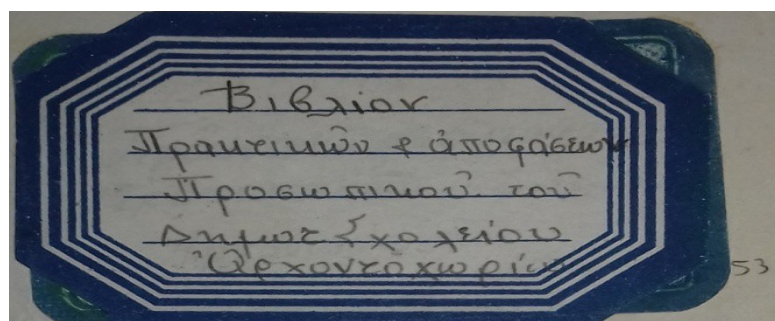 Βιβλίον
Πρακτικῶν & ἀποφάσεων
Προσωπικοῦ τοῦ
Δημοτ Σχολείου
Ἀρχοντοχωρίου
53